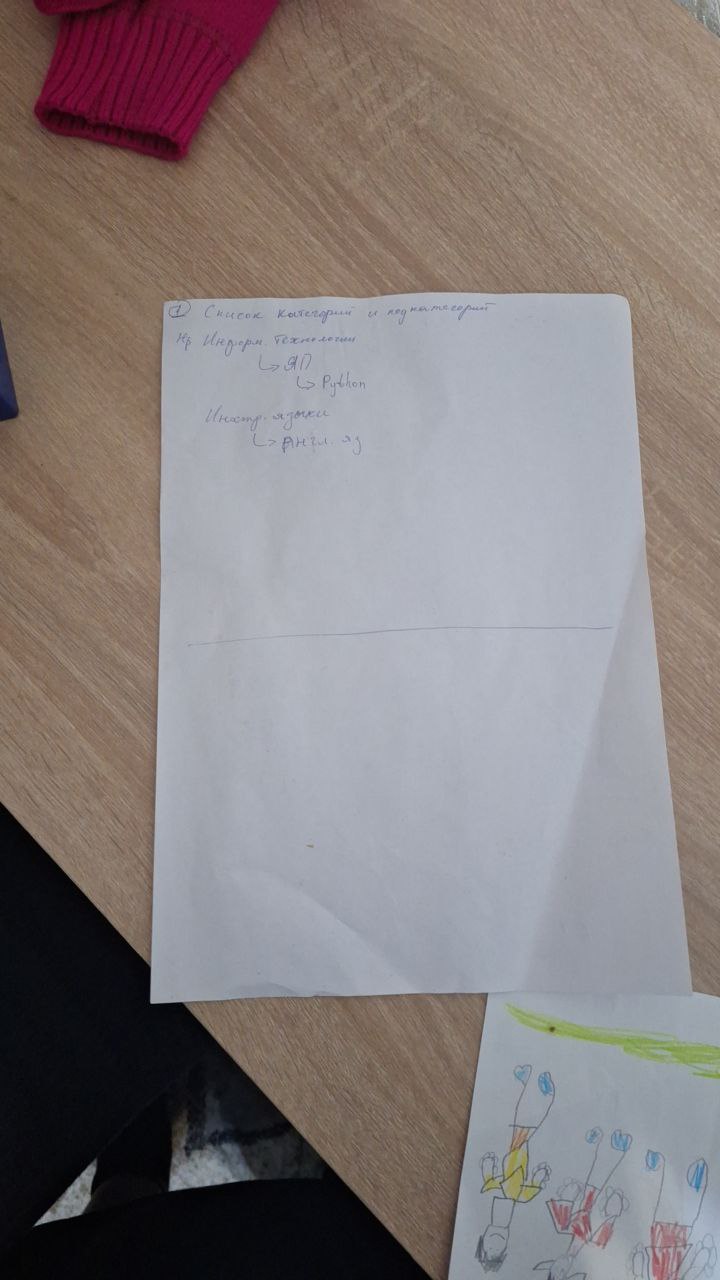 1 Список категорий и подкатегорий
Нр Информ. технологии
↳ ЯП
↳ Python
Иностр. языки
↳ Англ. яз